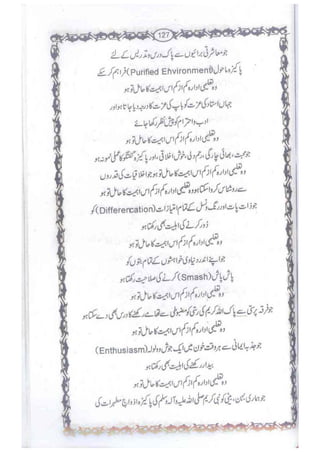 127
جو معاشرتی برائیوں سے پاک درس و تدریس کے لئے
پاکیزہ ماحول (Purified Ehvironment) فراہم کر سکے
وہ تعلیمی ادارہ کم از کم اس اہمیت کا حامل تو ہو
جہاں استاد کی عزت کو باپ کی عزت کا درجہ دیا جاتا ہو اور
ادب و احترام کو پیش نظر رکھا جائے
وہ تعلیمی ادارہ کم از کم اس اہمیت کا حامل تو ہو
جو محبت، بھائی چارگی، رحم دلی، خوش اخلاقی، اور پاکیزہ گفتگو کا عملی نمونہ ہو
وہ تعلیمی ادارہ کم از کم اس اہمیت کا حامل تو ہو جو اخلاقیات کی قدروں
سے روشناس کروا سکتا ہو وہ تعلیمی ادارہ کم از کم اس اہمیت کا حامل تو ہو
جو ذات پات اور رنگ و نسل کے تمام امتیازات (Differencation) کو
دور کرنے کی اہلیت بھی رکھتا ہو
وہ تعلیمی ادارہ کم از کم اس اہمیت کا حامل تو ہو
جو اپنے اندر دنیاوی خواہشوں کے تمام بتوں کو
پاش پاش (Smash) کرنے کی صلاحیت رکھتا ہو
وہ تعلیمی ادارہ کم از کم اس اہمیت کا حامل تو ہو
جو فرقہ پرستی سے پاک اللہ کریم کی رسی کو مضبوطی سے تھامے رکھنے کا درس بھی دے سکتا ہو
وہ تعلیمی ادارہ کم از کم اس اہمیت کا حامل تو ہو
جو جذبہ ایمانی سے ہر وقت خون میں ایک جوش و ولولہ (Enthusiasm)
بیدار رکھنے کی اہلیت بھی رکھتا ہو
وہ تعلیمی ادارہ کم از کم اس اہمیت کا حامل تو ہو
جو ہماری بہن، بیٹی کو نبی کریم صلی اللہ علیہ وآلہ وسلم کی پاکیزہ ازواج مطہرات کی